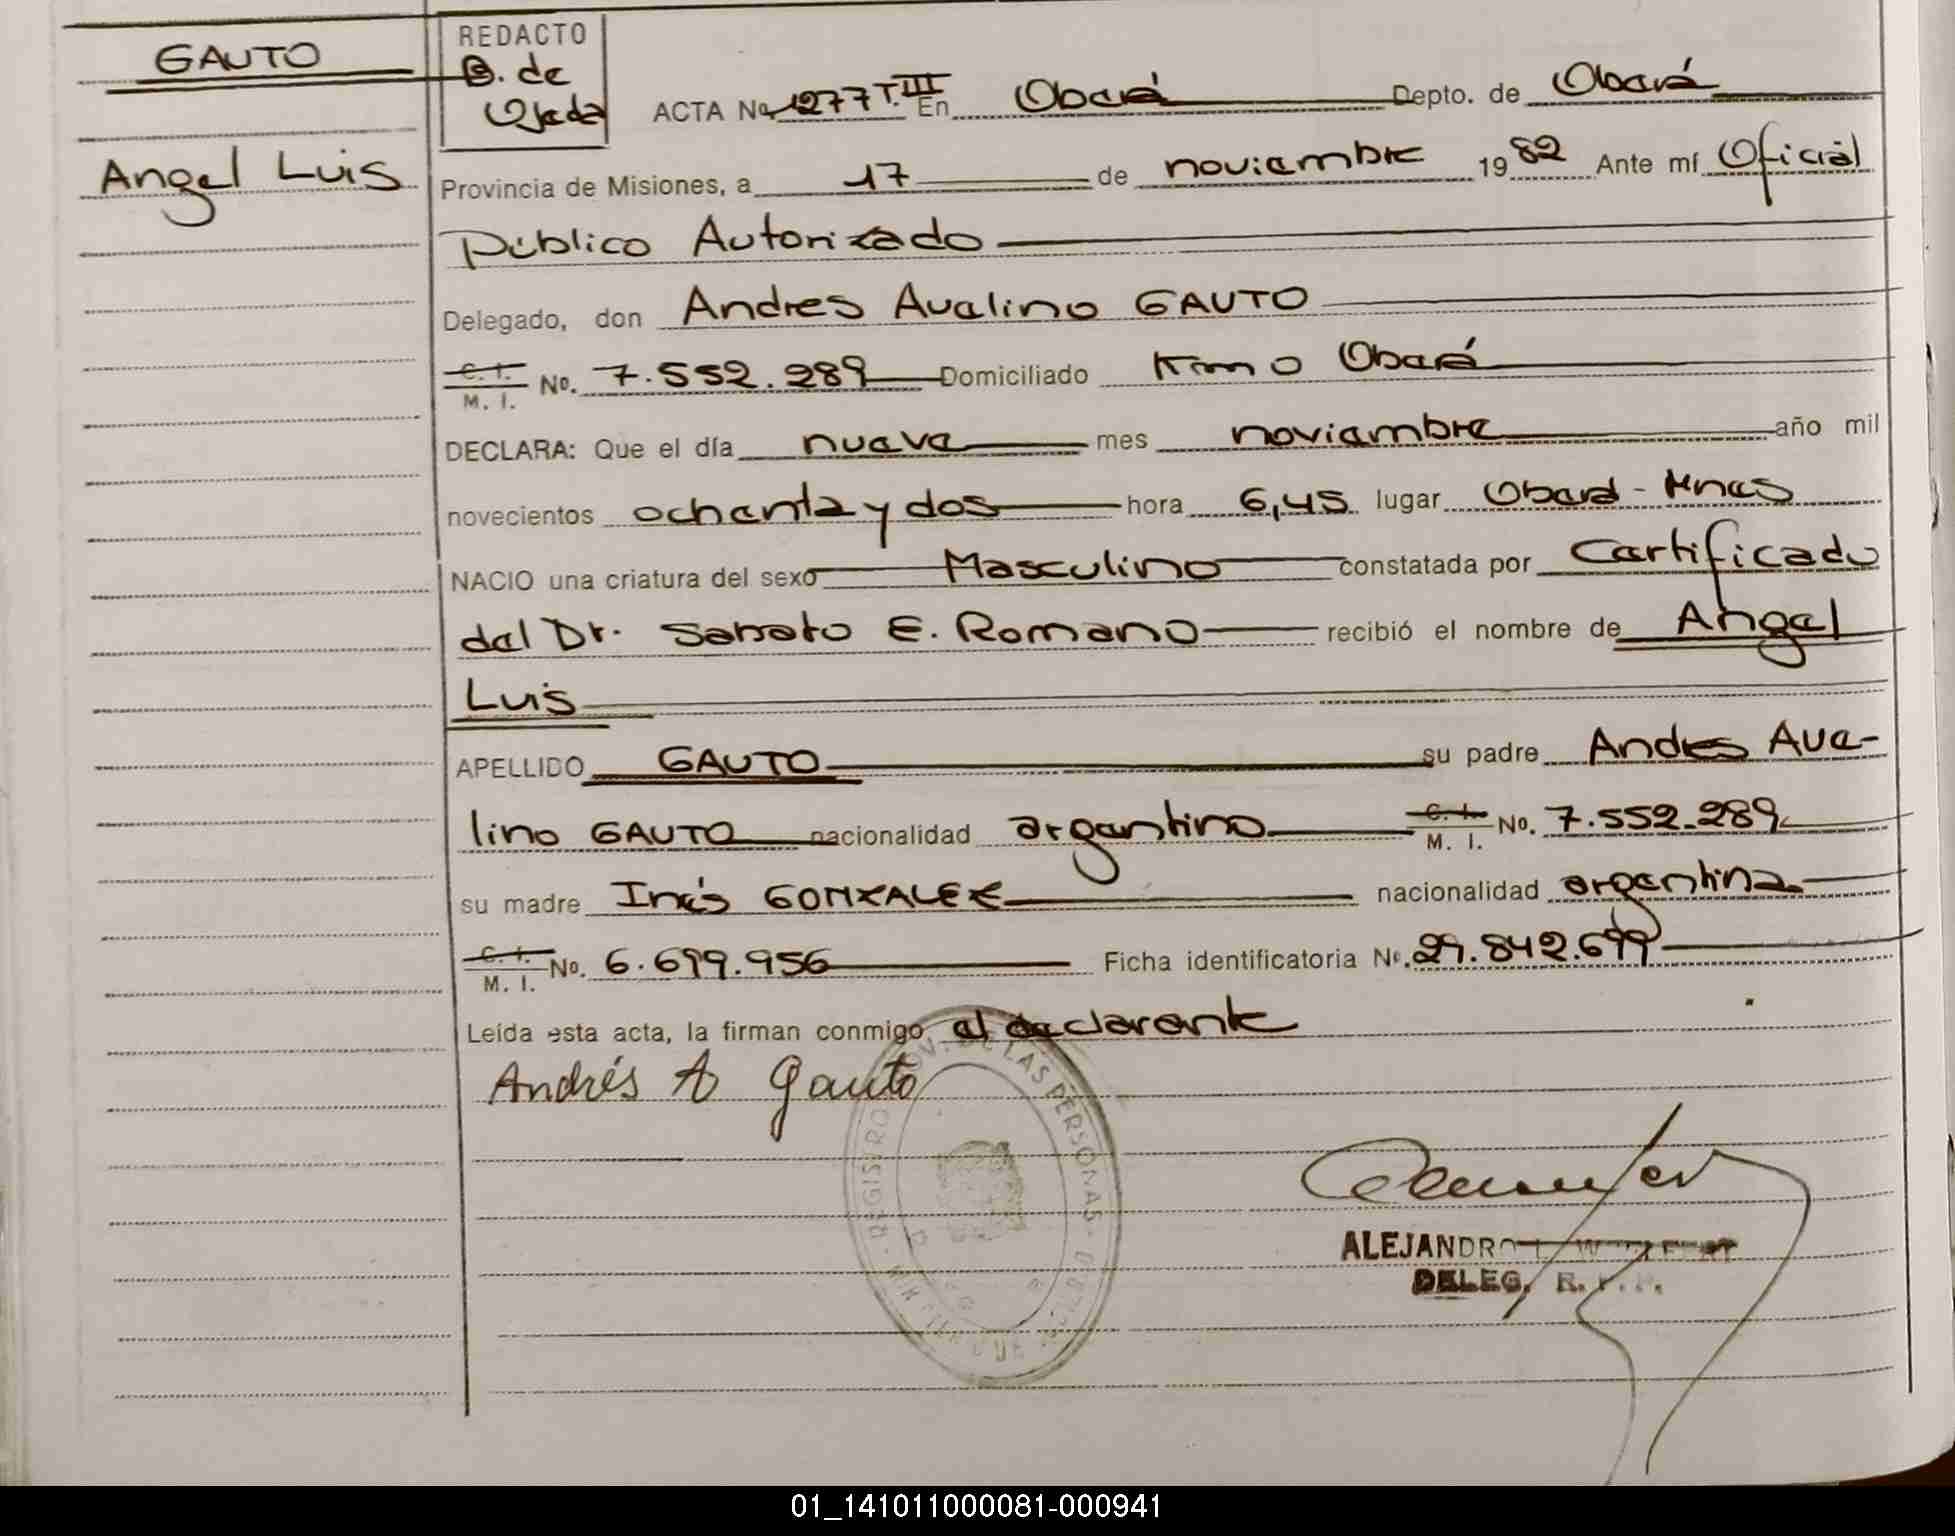 GAUTO
Angel Luis
REDACTO
B. de
Ojeda
ACTA No 1277 T.III En Oberá Depto. de Oberá
Provincia de Misiones, a 17 de noviembre 1982 Ante mí Oficial
Público Autorizado
Delegado, don Andres Avelino GAUTO
C. I. M. I. No. 7.552.289 Domiciliado Kmo Oberá
DECLARA: Que el día nueve mes noviembre año mil
novecientos ochenta y dos hora 6,45 lugar Oberá - Mnes
NACIO una criatura del sexo Masculino constatada por Certificado
del Dr. Sabato E. Romano recibió el nombre de Angel
Luis
APELLIDO GAUTO su padre Andres Ave-
lino GAUTO nacionalidad argentino C. I. M. I. No. 7.552.289
su madre Inés GONZALEZ nacionalidad argentina
C. I. M. I. No. 6.699.956 Ficha identificatoria No. 29.842.699
Leída esta acta, la firman conmigo el declarante
Andrés A Gauto
REGISTRO PROV. DE LAS PERSONAS
ALEJANDRO
DELEG. R. P. P.
01_141011000081-000941